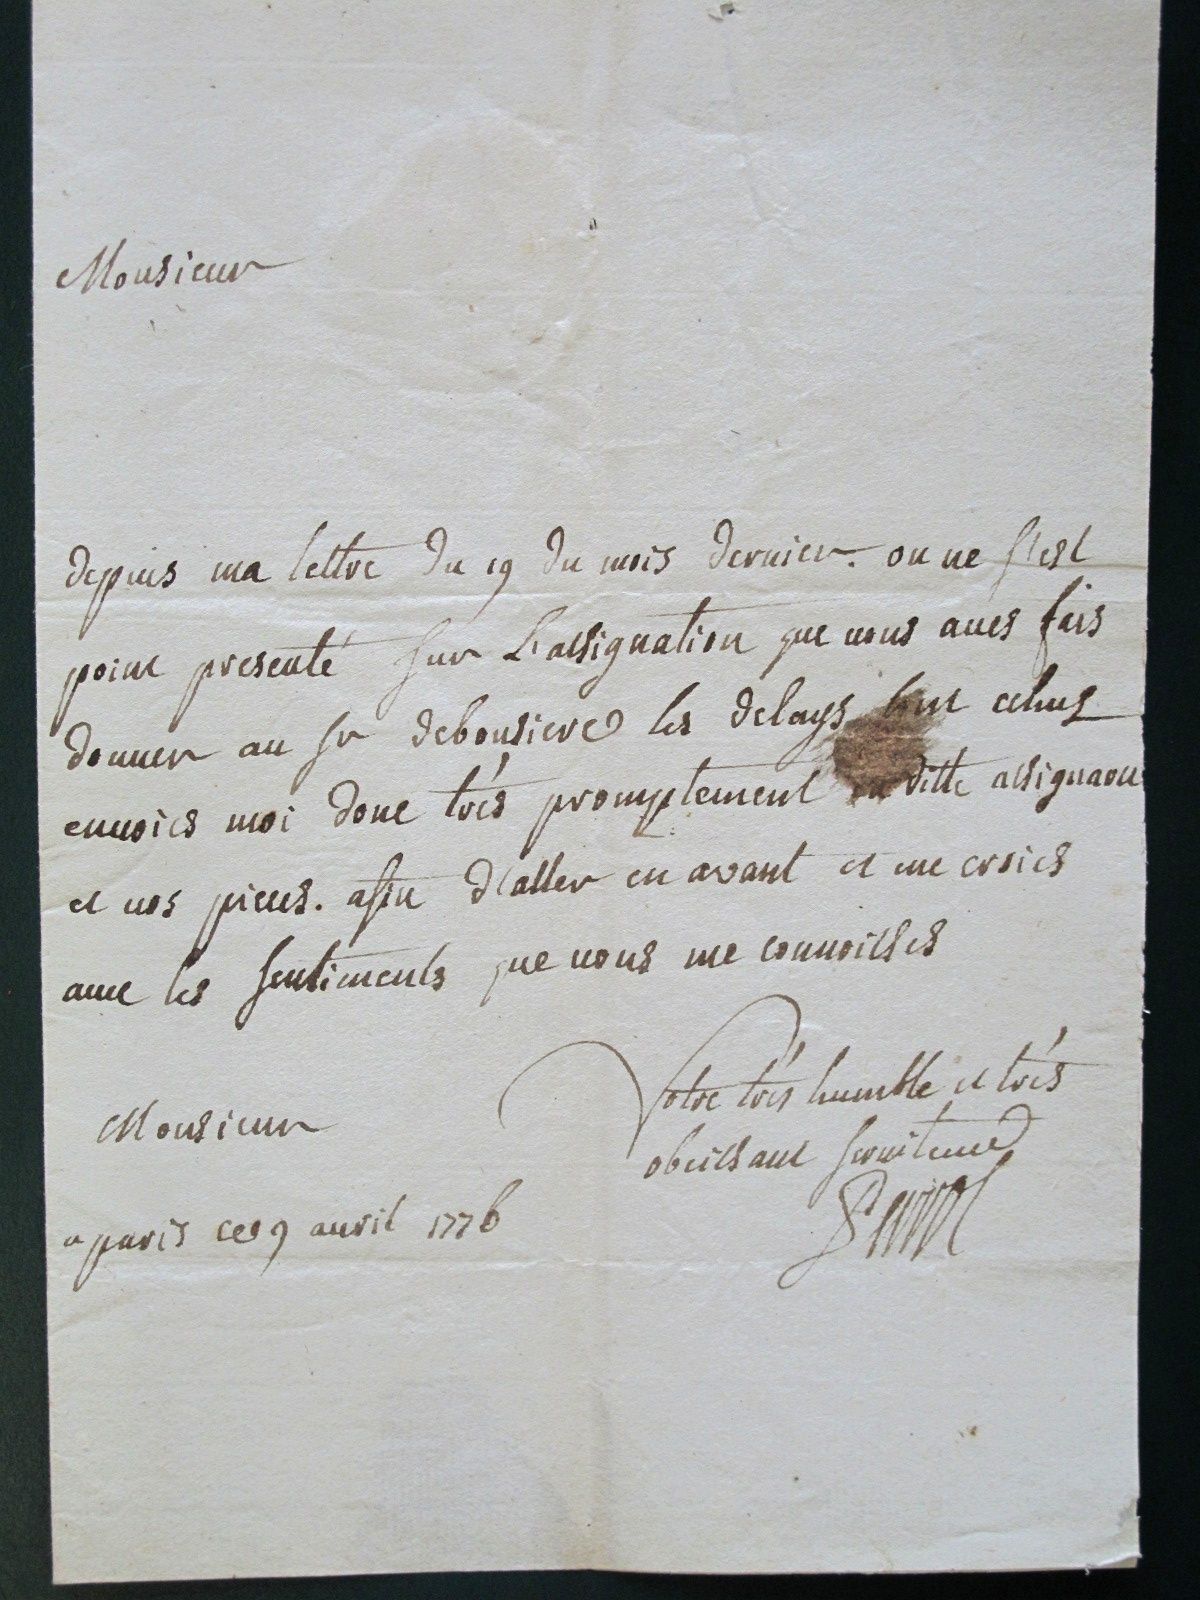 Monsieur
depuis ma lettre du 19 du mois dernier. on ne s'est
point presenté sur L'assignation que vous aves fais
donner au sr debousiere les delays sont echus
envoies moi donc trés promptement la ditte assignaon
et vos pieces. afin d'aller en avant et me croies
avec les sentiments que vous me connoisses
Monsieur
Votre trés humble et trés
obeissant serviteur
a paris ce 9 avril 1776